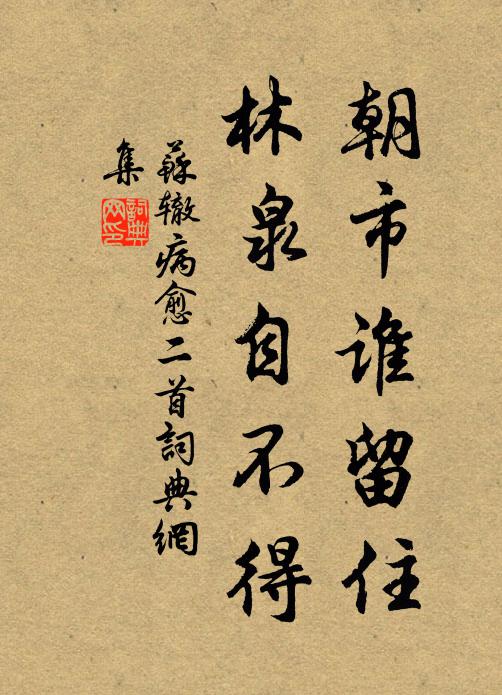 朝市誰留住
林泉自不得
蘇辙病愈二首詞典網
集
詞典
网印